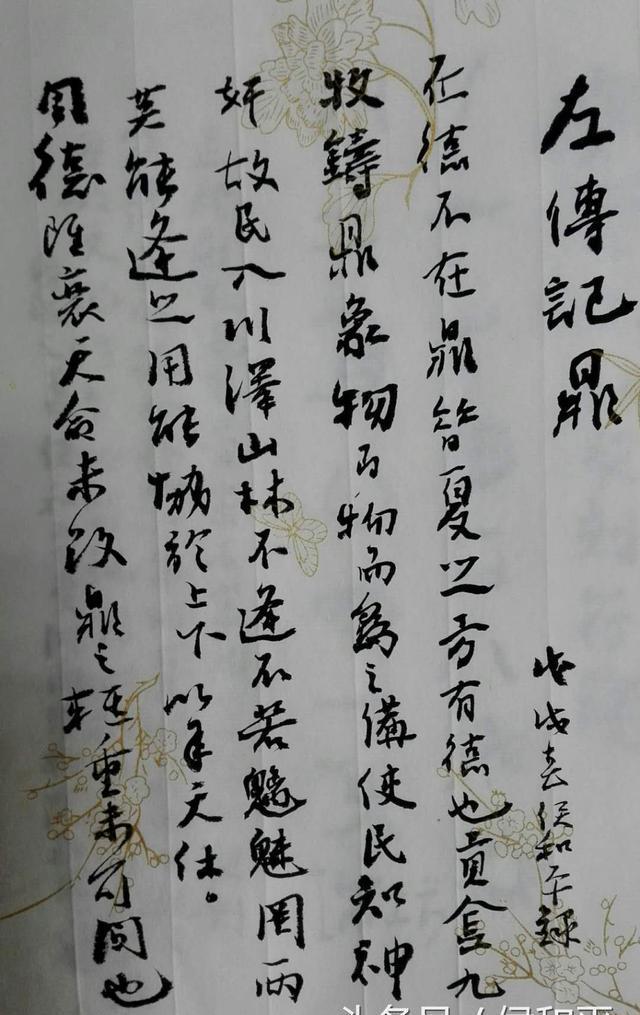 左傳記鼎
戊戌春侯和平錄
在德不在鼎昔夏之方有德也貢金九
牧鑄鼎象物百物而為之備使民知神
奸故民入川澤山林不逢不若魑魅罔兩
莫能逢之用能協於上下以承天休。
周德雖衰天命未改鼎之輕重未可問也
头条号 / 侯和平